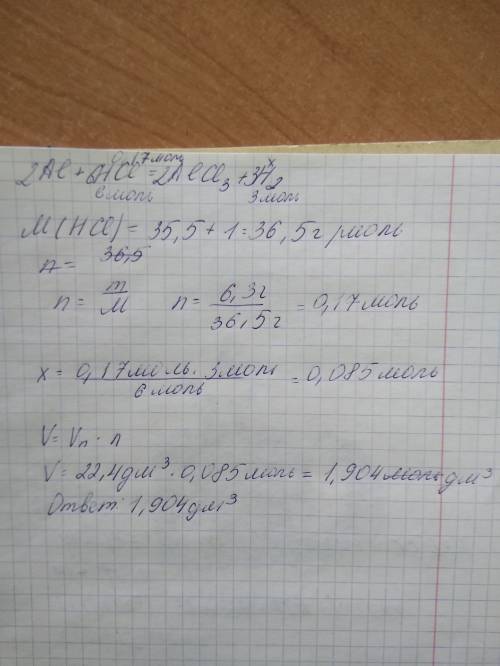 0,17моль x
2Al + 6HCl = 2AlCl₃ + 3H₂
6 моль 3 моль
M(HCl) = 35,5 + 1 = 36,5 г/моль
n = 36,5
n = m/M n = 6,3г/36,5г = 0,17 моль
x = 0,17моль · 3моль/6 моль = 0,085 моль
V = Vn · n
V = 22,4дм³ · 0,085 моль = 1,904 моль дм³
Ответ: 1,904 дм³